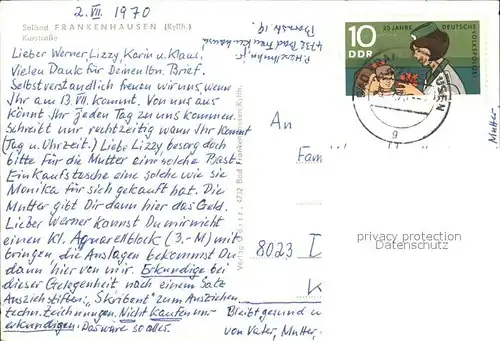 2. VII. 1970
Solbad FRANKENHAUSEN (Kyffh.)
Kurstraße
4732 Bad Frankenhausen
Lieber Werner, Lizzy, Karin u. Klaus,
Vielen Dank für Deinen lbn. Brief.
Selbstverständlich freuen wir uns wenn
Ihr am 13. VII. kommt. Von uns aus
könnt Ihr jeden Tag zu uns kommen.
Schreibt nur rechtzeitig wann Ihr kommt
(Tag u. Uhrzeit.) Liebe Lizzy besorg doch
bitte für die Mutter eine solche Plast-
Einkaufstasche eine solche wie sie
Monika für sich gekauft hat. Die
Mutter gibt Dir dann hier das Geld.
Lieber Werner kannst Du mir nicht
einen Kl. Aquarellblock (3,-M) mit-
bringen, die Auslagen bekommst Du
dann hier von mir. Erkundige bei
dieser Gelegenheit nach einem Satz
Ausziehstiften: "Skribent" zum Ausziehen
techn. Zeichnungen. Nicht kaufen nur
erkundigen. Das wäre so alles.
Bleibt gesund u
von Vater, Mutter,
Mutter
4732 Bad Frankenhausen/Kyffh.
10
DDR
25 JAHRE DEUTSCHE
VOLKSPOLIZEI
BAD
HAUSEN
g
An
Fam
8023
privacy protection
Datenschutz